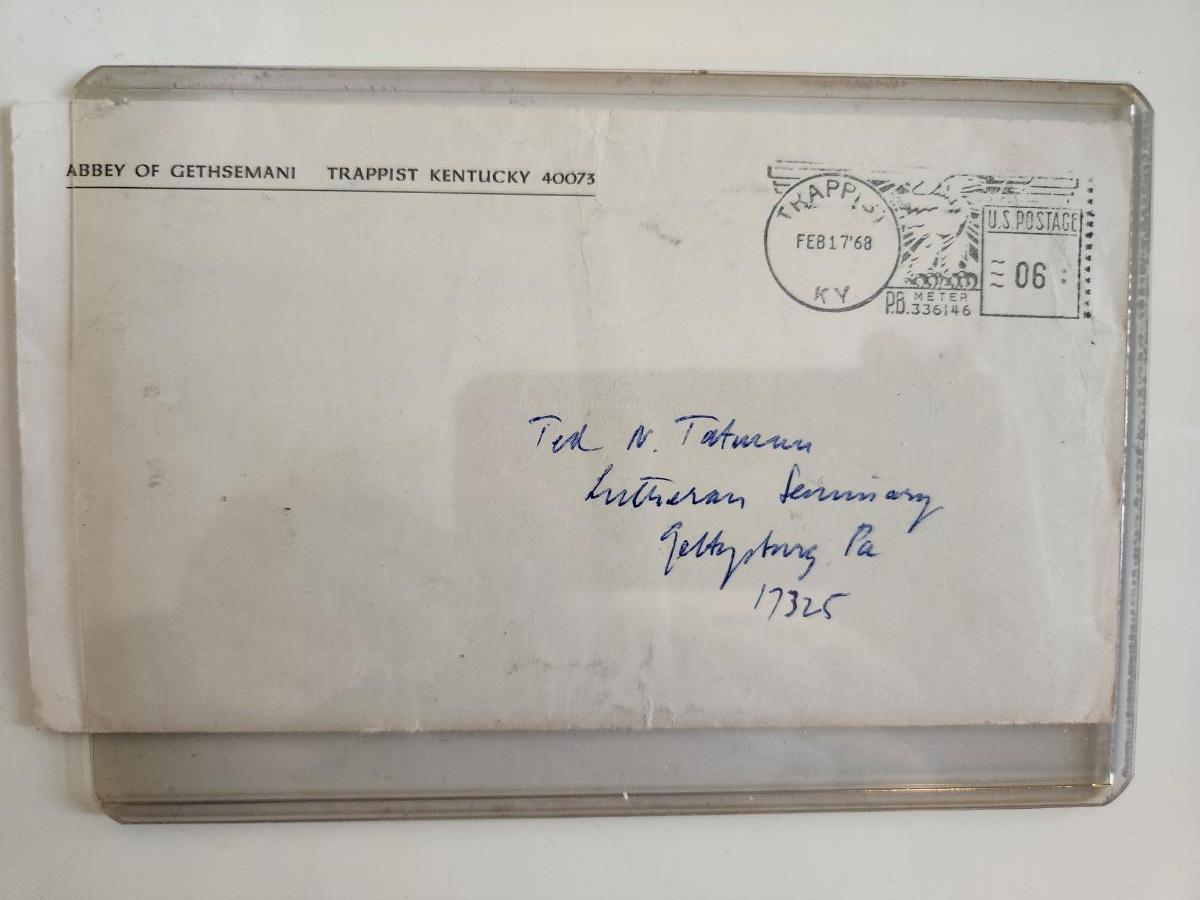 ABBEY OF GETHSEMANI TRAPPIST KENTUCKY 40073
TRAPPIST
FEB 17 '68
KY.
P.B. METER
336146
U.S. POSTAGE
06
Ted N. Tatman
Lutheran Seminary
Gettysburg Pa
17325